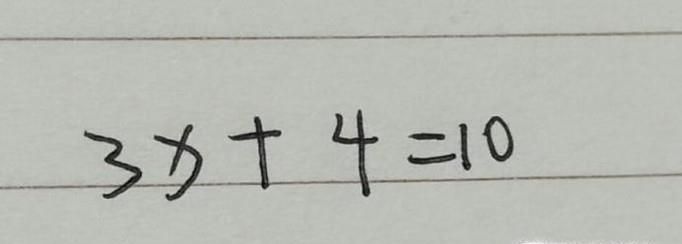 3x + 4 = 10